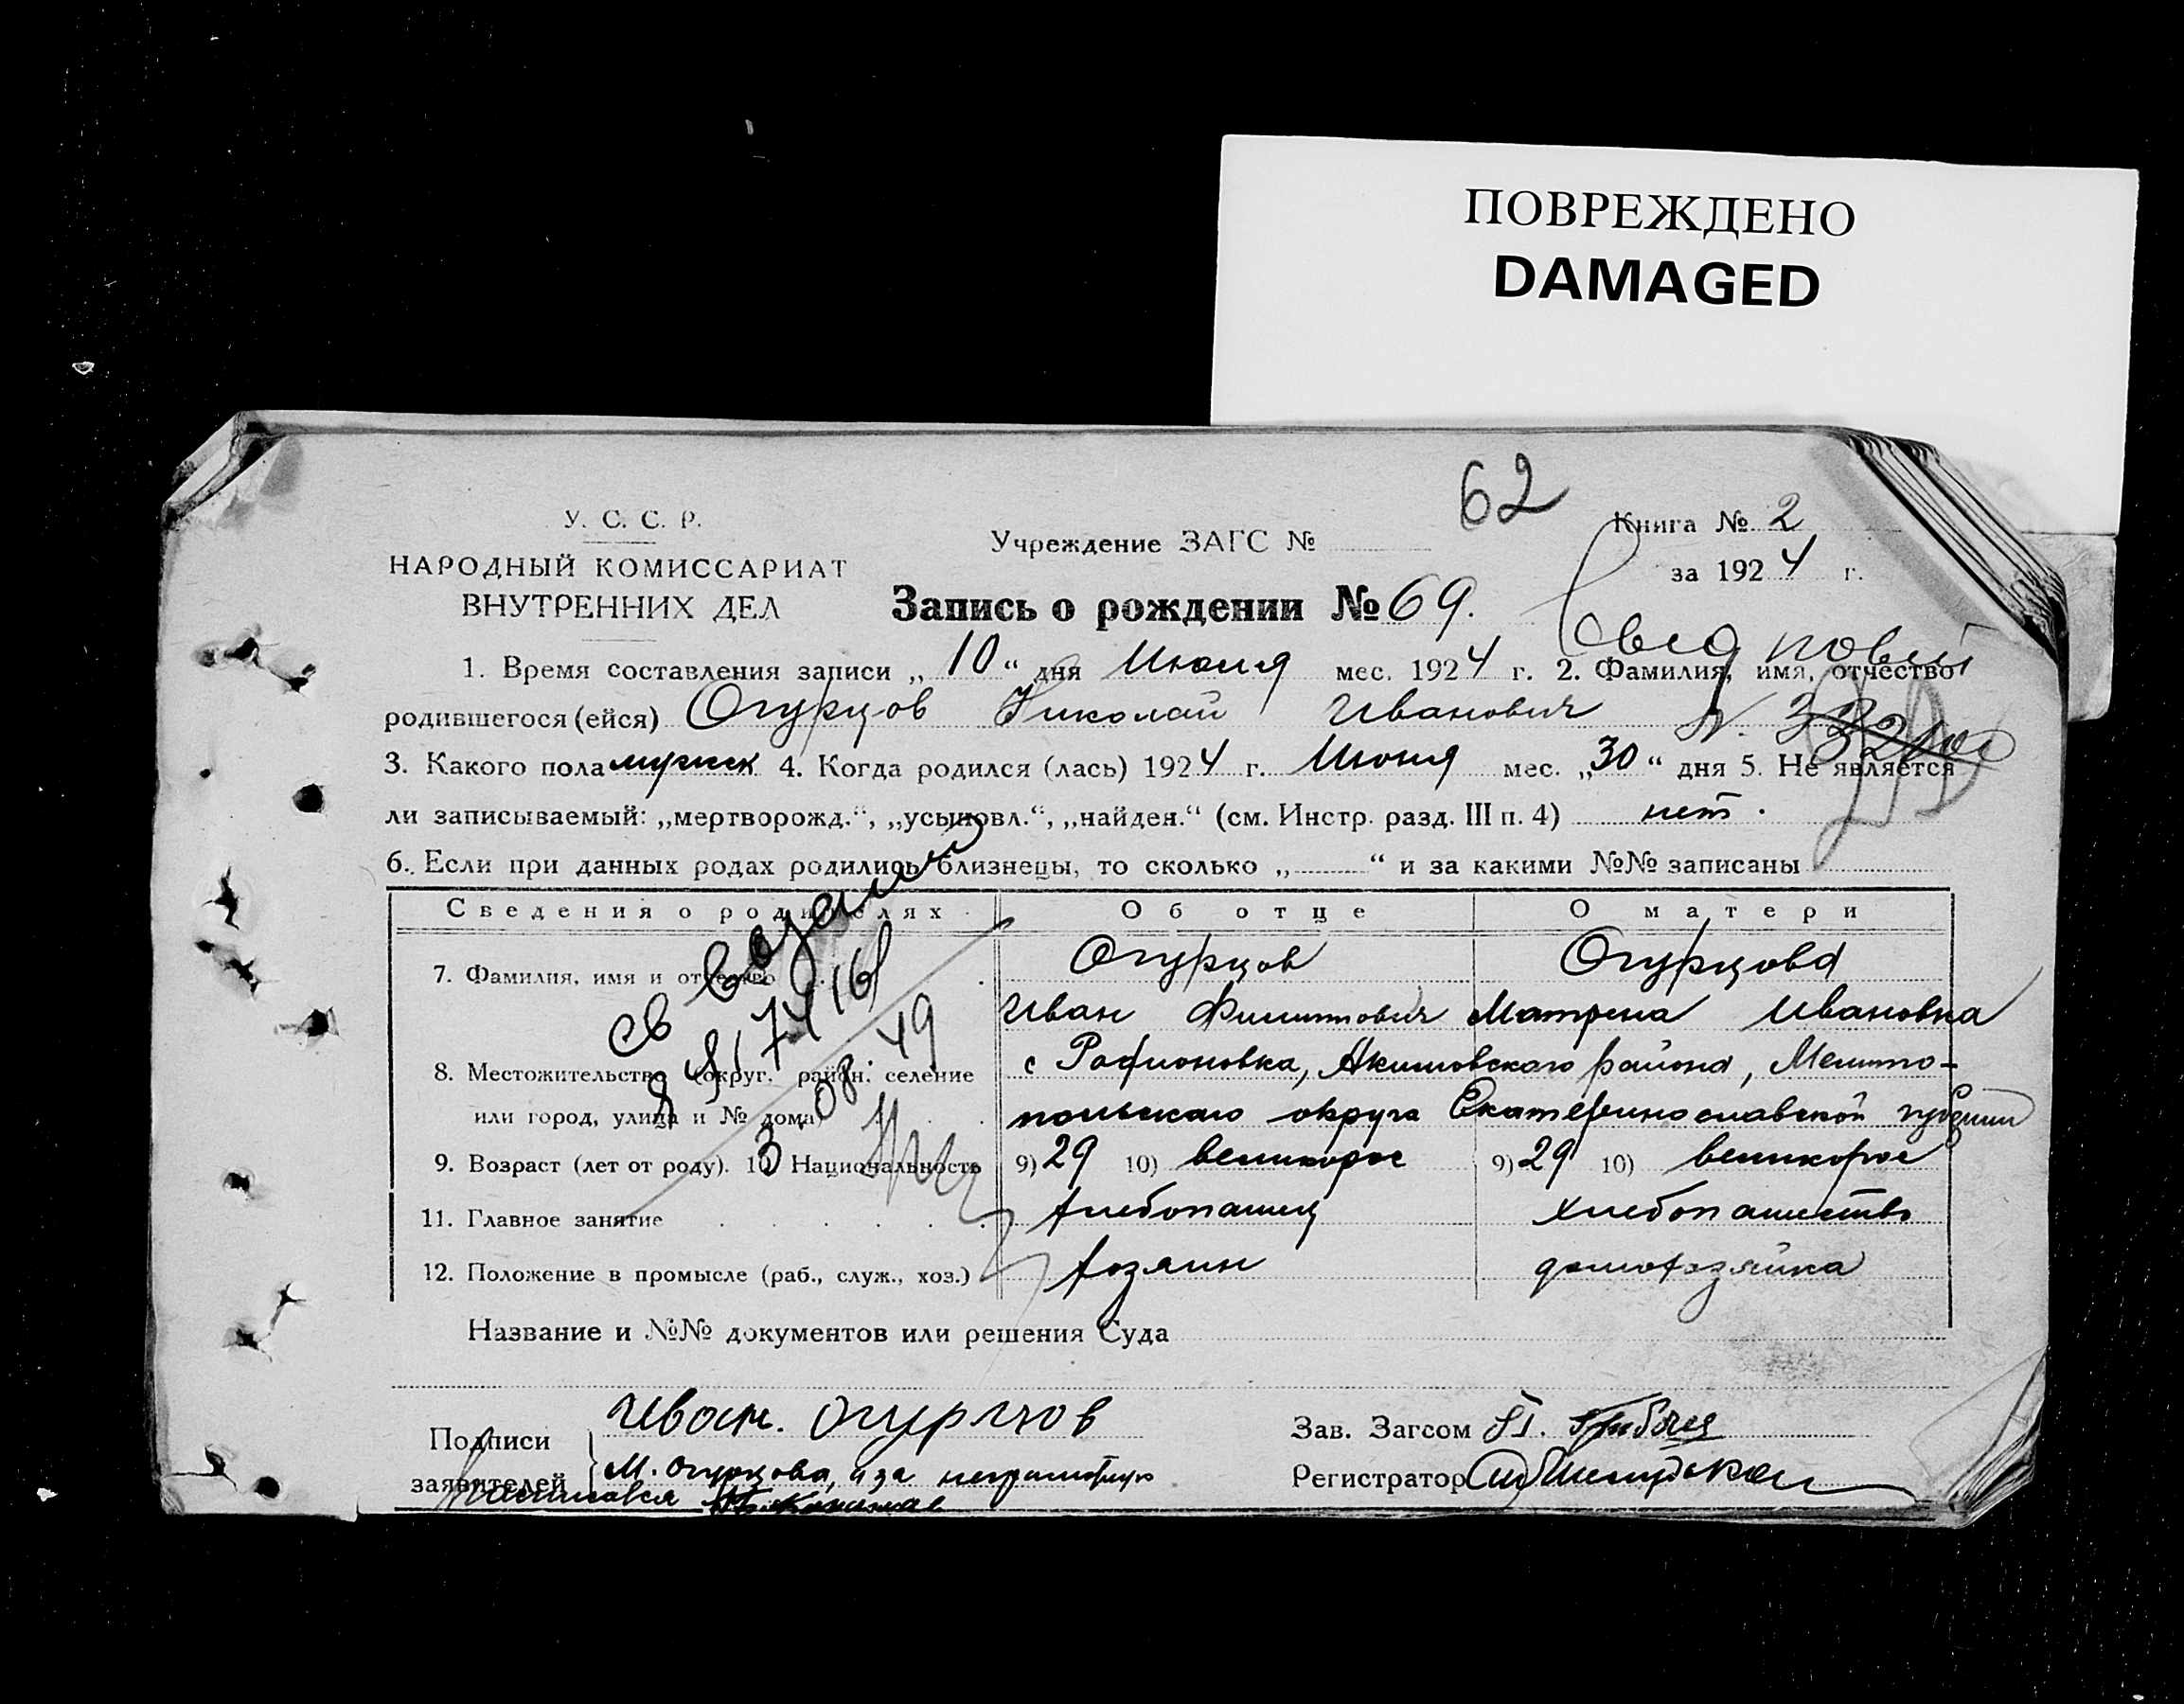 ПОВРЕЖДЕНО
DAMAGED
62
У. С. С. Р.
НАРОДНЫЙ КОМИССАРИАТ
ВНУТРЕННИХ ДЕЛ
Учреждение ЗАГС №
Книга № 2
за 1924 г.
Запись о рождении № 69.
1. Время составления записи „10“ дня Июля мес. 1924 г. 2. Фамилия, имя, отчество
родившегося (ейся) Огурцов Николай Иванович
3. Какого пола мужск 4. Когда родился (лась) 1924 г. Июня мес. „30“ дня 5. Не является
ли записываемый: „мертворожд.“, „усыновл.“, „найден.“ (см. Инстр. разд. III п. 4) нет.
6. Если при данных родах родились близнецы, то сколько „ “ и за какими №№ записаны
Сведения о родителях Об отце О матери
7. Фамилия, имя и отчество Огурцов Огурцова
Иван Матрена Ивановна
8. Местожительство (округ. район. селение с Родионовка, Акимовского района, Мелито-
или город, улица и № дома) польского округа Екатеринославской губернии
9. Возраст (лет от роду). 10 Национальность 9) 29 10) великорос 9) 29 10) великорос
11. Главное занятие хлебопашец хлебопашество
12. Положение в промысле (раб., служ., хоз.) хозяин домохозяйка
Название и №№ документов или решения Суда
Подписи
заявителей
Иван. Огурцов
М. Огурцова, и за неграмотную
Зав. Загсом
Регистратор